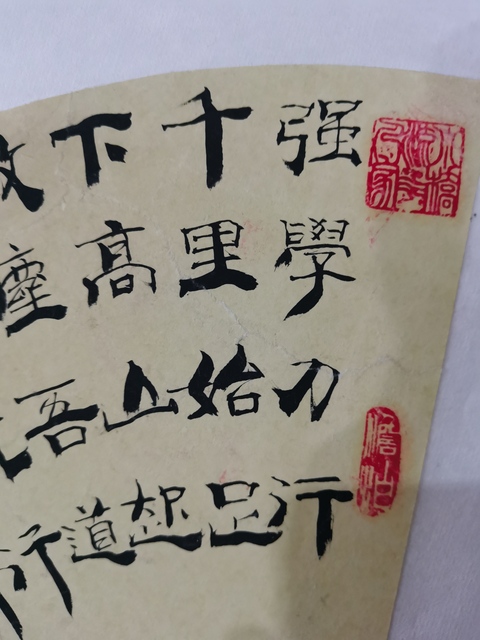 强學力行
千里始足
下高山起
塵吾道
行
澹泊